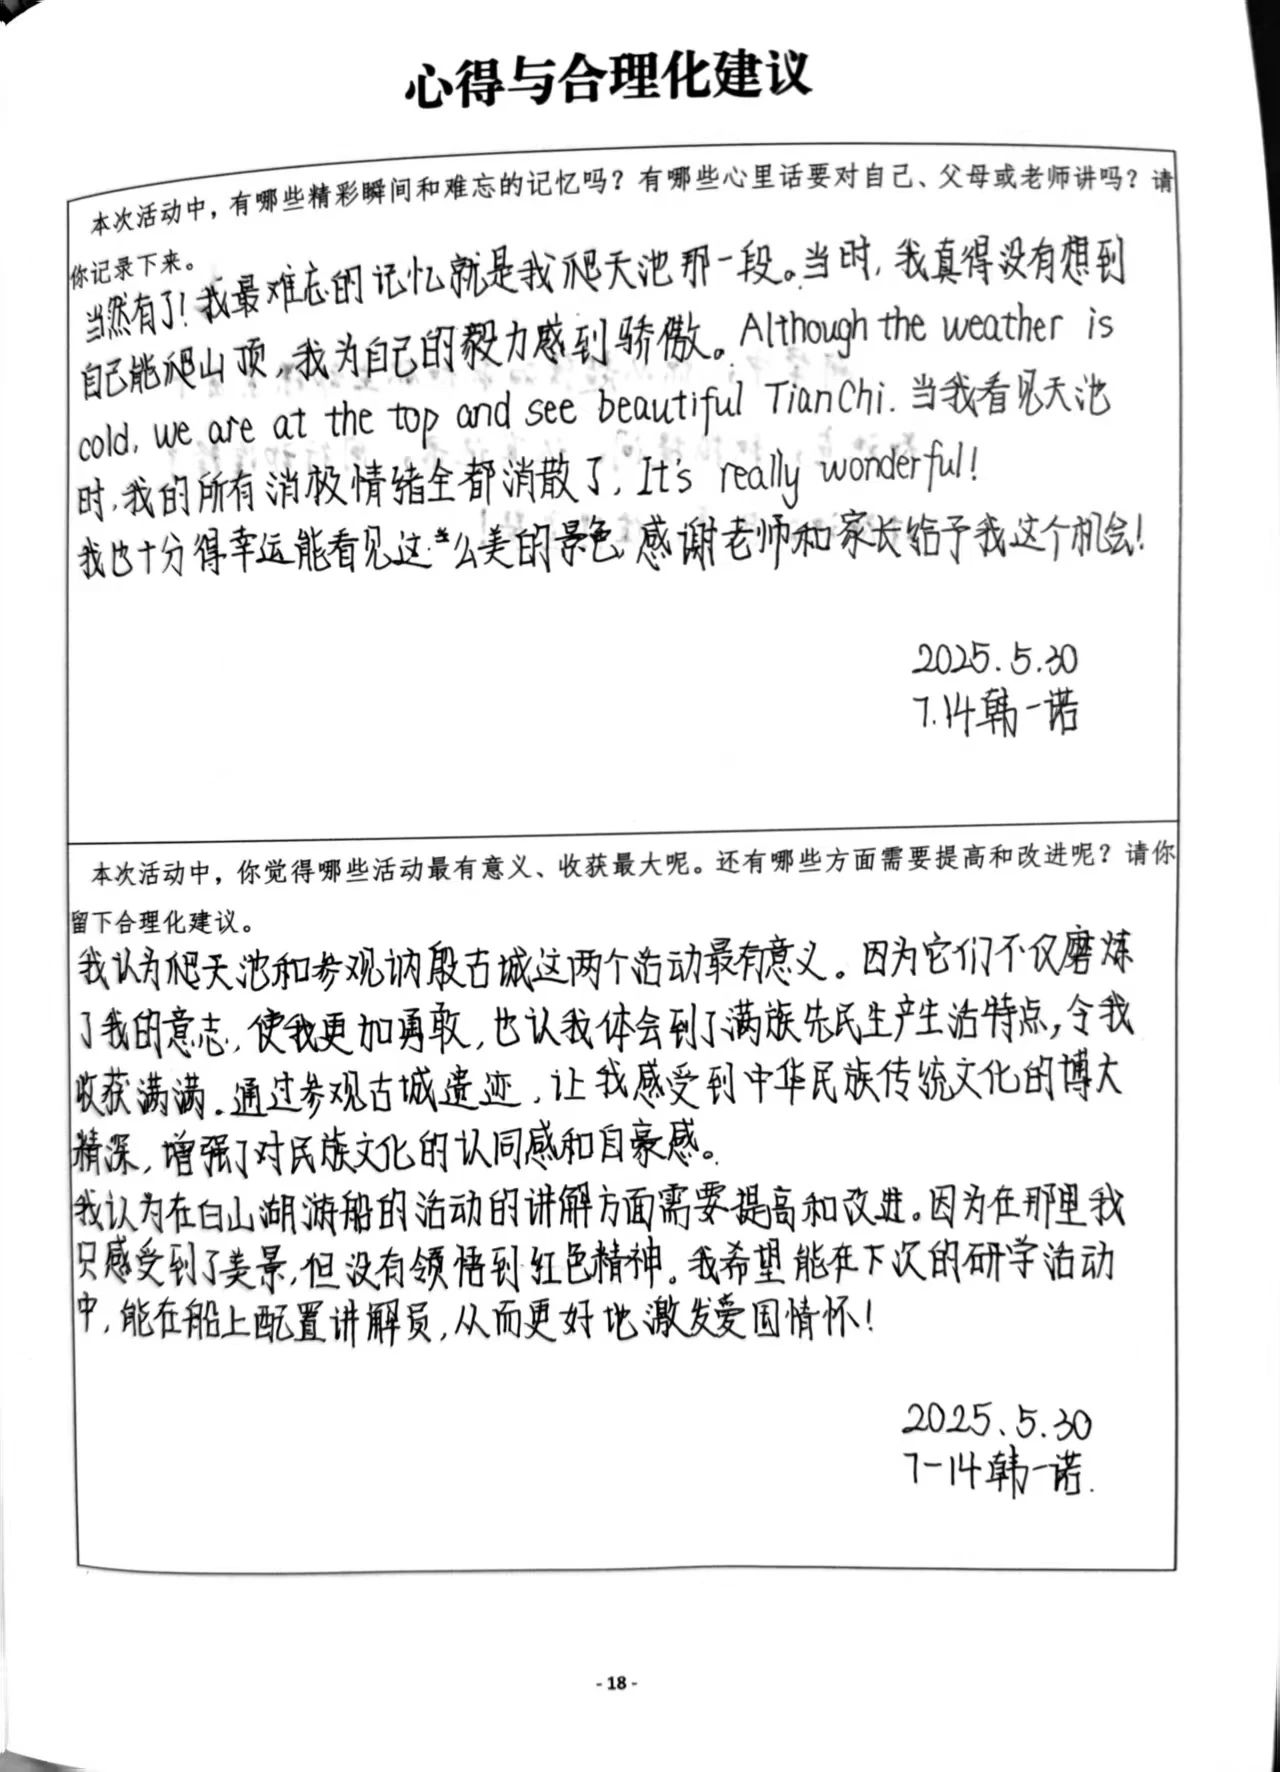 心得与合理化建议
本次活动中，有哪些精彩瞬间和难忘的记忆吗？有哪些心里话要对自己、父母或老师讲吗？请
你记录下来。
当然有了！我最难忘的记忆就是我爬天池那一段。当时，我真得没有想到
自己能爬山顶，我为自己的毅力感到骄傲。Although the weather is
cold, we are at the top and see beautiful TianChi. 当我看见天池
时，我的所有消极情绪全都消散了，It's really wonderful!
我也十分得幸运能看见这么美的景色 感谢老师和家长给予我这个机会！
2025.5.30
7.14韩一诺
本次活动中，你觉得哪些活动最有意义、收获最大呢。还有哪些方面需要提高和改进呢？请你
留下合理化建议。
我认为爬天池和参观讷殷古城这两个活动最有意义。因为它们不仅磨炼
了我的意志，使我更加勇敢，也认我体会到了满族先民生产生活特点，令我
收获满满。通过参观古城遗迹，让我感受到中华民族传统文化的博大
精深，增强了对民族文化的认同感和自豪感。
我认为在白山湖游船的活动的讲解方面需要提高和改进。因为在那里我
只感受到了美景，但没有领悟到红色精神。我希望能在下次的研学活动
中，能在船上配置讲解员，从而更好地激发爱国情怀！
2025.5.30
7-14韩一诺.
- 18 -